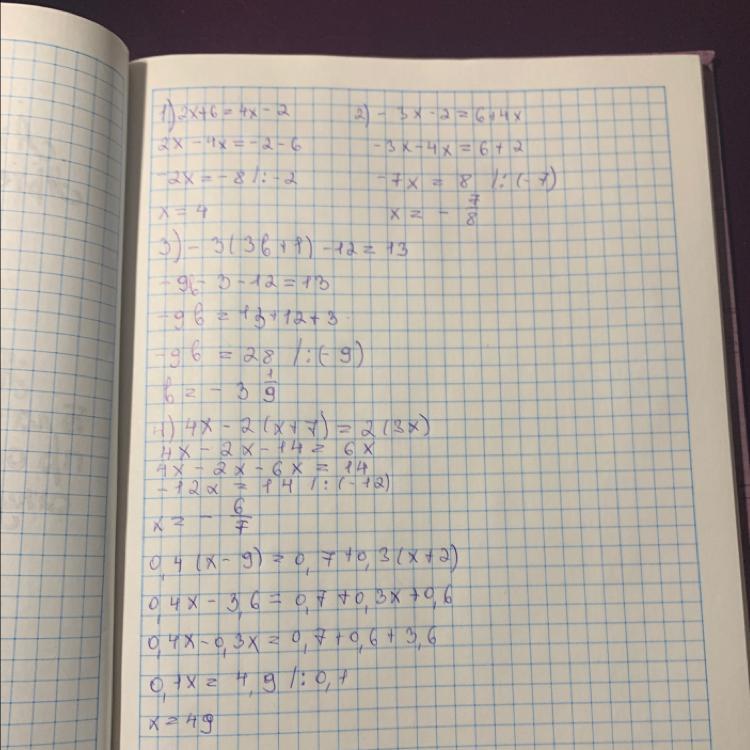 1) 2x+6=4x-2
2x-4x=-2-6
-2x=-8 /:-2
x=4
2) -3x-2=6+4x
-3x-4x=6+2
-7x=8 /:(-7)
x=-7/8
3) -3(3b+1)-12=13
-9b-3-12=13
-9b=13+12+3
-9b=28 /:(-9)
b=-3 1/9
4) 4x-2(x+7)=2(3x)
4x-2x-14=6x
4x-2x-6x=14
-12x=14 /:(-12)
x=-6/7
0,4(x-9)=0,7+0,3(x+2)
0,4x-3,6=0,7+0,3x+0,6
0,4x-0,3x=0,7+0,6+3,6
0,1x=4,9 /:0,1
x=49